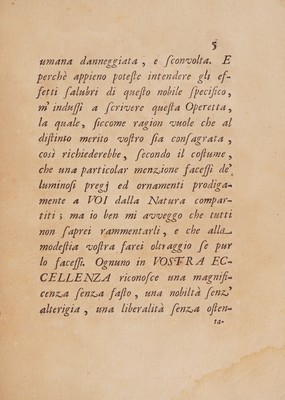 5
umana danneggiata , e ſconvolta. E
perchè appieno poteſte intendere gli ef-
fetti ſalubri di queſto nobile ſpecifico,
m' induſſi a ſcrivere queſta Operetta,
la quale, ſiccome ragion vuole che al
diſtinto merito voſtro ſia conſagrata,
così richiederebbe, ſecondo il coſtume,
che una particolar menzione faceſſi de'
luminoſi pregj ed ornamenti prodiga-
mente a VOI dalla Natura compar-
titi ; ma io ben mi avveggo che tutti
non ſaprei rammentarli, e che alla
modeſtia voſtra farei oltraggio ſe pur
lo faceſſi. Ognuno in VOSTRA EC-
CELLENZA riconoſce una magnifi-
cenza ſenza faſto, una nobiltà ſenz'
alterigia , una liberalità ſenza oſten-
ta-